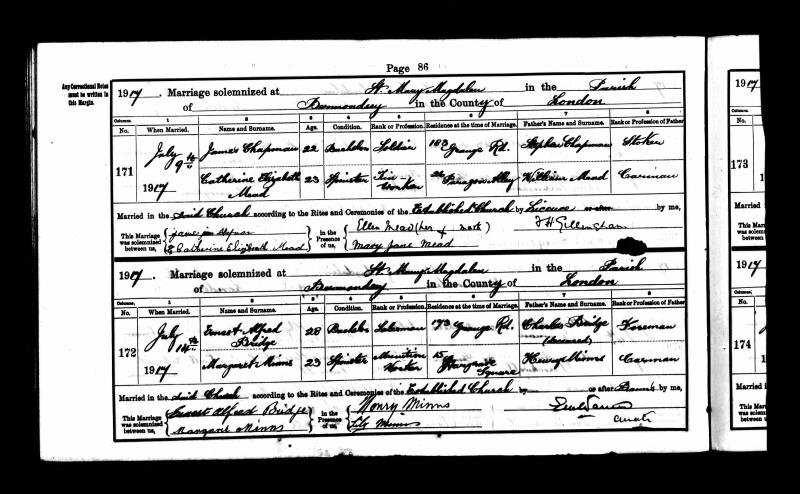 Page 86
Any Correctional Notes
must be written in
this Margin.
1917. Marriage solemnized at St. Mary Magdalen in the Parish
of Bermondsey in the County of London
Columns. 1 2 3 4 5 6 7 8
No. When Married. Name and Surname. Age. Condition. Rank or Profession. Residence at the time of Marriage. Father's Name and Surname. Rank or Profession of Father
171 July 9th 1917
James Chapman 22 Bachelor Soldier 183 Grange Rd. Stephen Chapman Stoker
Catherine Elizabeth Mead 23 Spinster Tin-Worker Paragon Alley William Mead Carman
Married in the Said Church according to the Rites and Ceremonies of the Established Church by Licence by me,
This Marriage was solemnized between us,
Catherine Elizabeth Mead
in the Presence of us,
Ellen Mead (her x mark)
Mary Jane Mead
F H Gillingham
1917. Marriage solemnized at St. Mary Magdalen in the Parish
of Bermondsey in the County of London
Columns. 1 2 3 4 5 6 7 8
No. When Married. Name and Surname. Age. Condition. Rank or Profession. Residence at the time of Marriage. Father's Name and Surname. Rank or Profession of Father
172 July 14th 1917
Ernest Alfred Bridge 28 Bachelor 173 Grange Rd. Charles Bridge (Deceased) Foreman
Margaret Minns 23 Spinster Munition Worker 15 Hargrave Square Henry Minns Carman
Married in the Said Church according to the Rites and Ceremonies of the Established Church by or after Banns by me,
This Marriage was solemnized between us,
Ernest Alfred Bridge
Margaret Minns
in the Presence of us,
Henry Minns
Lily Minns
Curate
1917
Columns.
No.
173
Married
This Marriage was solemnized between us,
1917
Columns.
No.
174
Married
This Marriage was solemnized between us,